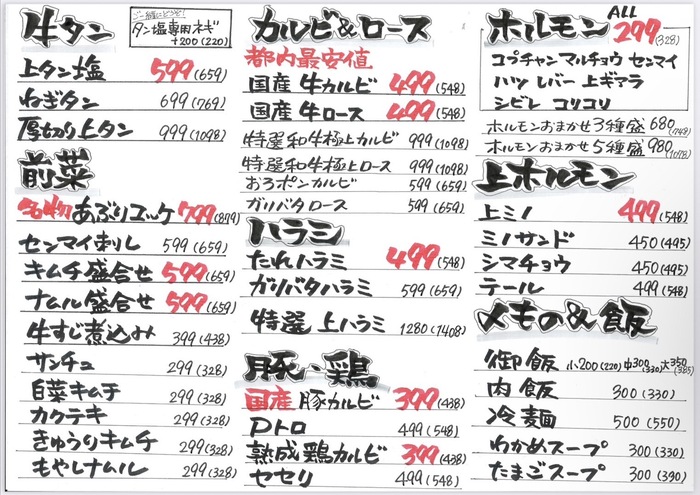 牛タン
ご一緒にどうぞ!
タン塩専用ネギ
+200(220)
上タン塩 599(659)
ねぎタン 699(769)
厚切り上タン 999(1098)
前菜
名物 あぶりユッケ 799(879)
センマイ刺し 599(659)
キムチ盛合せ 599(659)
ナムル盛合せ 599(659)
牛すじ煮込み 399(438)
サンチュ 299(328)
白菜キムチ 299(328)
カクテキ 299(328)
きゅうりキムチ 299(328)
もやしナムル 299(328)
カルビ&ロース
都内最安値
国産 牛カルビ 499(548)
国産 牛ロース 499(548)
特選和牛極上カルビ 999(1098)
特選和牛極上ロース 999(1098)
おろポンカルビ 599(659)
ガリバタロース 599(659)
ハラミ
たれハラミ 499(548)
ガリバタハラミ 599(659)
特選 上ハラミ 1280(1408)
豚・鶏
国産 豚カルビ 399(438)
Pトロ 499(548)
熟成鶏カルビ 399(438)
セセリ 499(548)
ホルモン ALL 299(328)
コプチャン マルチョウ センマイ
ハツ レバー 上ギアラ
シビレ コリコリ
ホルモンおまかせ3種盛 680(748)
ホルモンおまかせ5種盛 980(1078)
上ホルモン
上ミノ 499(548)
ミノサンド 450(495)
シマチョウ 450(495)
テール 499(548)
〆もの&飯
御飯 小200(220) 中300(330) 大350(385)
肉飯 300(330)
冷麺 500(550)
わかめスープ 300(330)
たまごスープ 300(390)